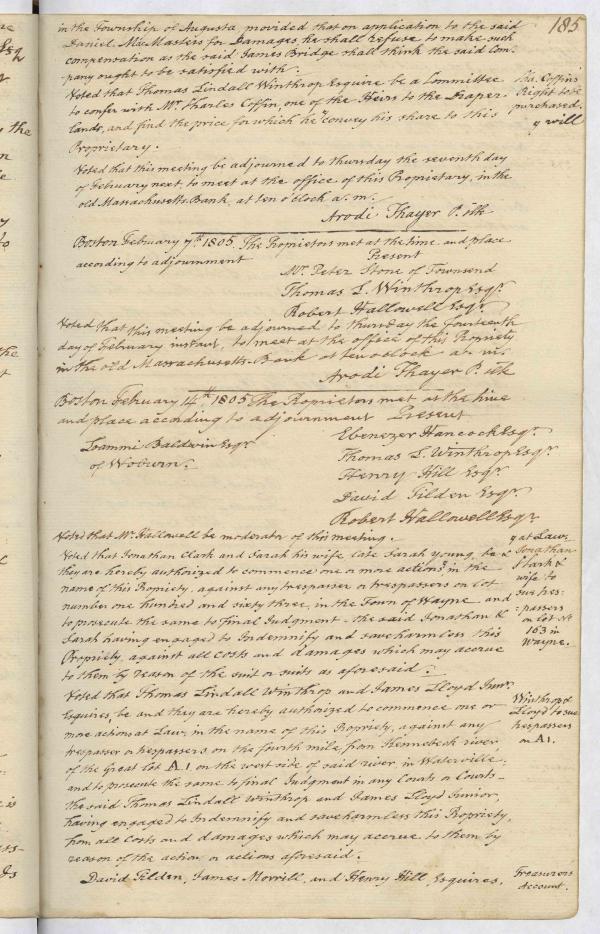 185
in the Township of Augusta provided that on application to the said
Daniel MacMasters for Damages he shall refuse to make such
compensation as the said James Bridge shall think the said Com-
pany ought to be satisfied with.
Voted that Thomas Lindall Winthrop Esquire be a Committee
to confer with Mr. Charles Coffin, one of the Heirs to the Draper
lands, and find the price, for which he " convey his share to this
Propriety.
Cha. Coffin's
Right to be
purchased.
" will
Voted that this meeting be adjourned to thursday the seventh day
of February next, to meet at the office of this Propriety, in the
old Massachusetts Bank, at ten o'clock a. m.
Arodi Thayer P. Clk
Boston February 7th 1805. The Proprietors met at the time and place
according to adjournment
Present
Mr. Peter Stone of Townsend
Thomas L. Winthrop Esqr.
Robert Hallowell Esqr.
Voted that this meeting be adjourned to thursday the fourteenth
day of February instant, to meet at the office of this Propriety
in the old Massachusetts-Bank at ten o'clock a. m.
Arodi Thayer P. Clk
Boston February 14th 1805 The Proprietors met at the time
and place according to adjournment Present
Loammi Baldwin Esqr.
of Woburn.
Ebenezer Hancock Esqr.
Thomas L. Winthrop Esqr.
Henry Hill Esqr.
David Tilden Esqr.
Robert Hallowell Esqr.
Voted that Mr. Hallowell be moderator of this meeting.
Voted that Jonathan Clark and Sarah his wife, late Sarah Young, be &
they are hereby authorized to commence one or more actions " in the
name of this Propriety, against any trespasser or trespassers on lot
number one hundred and sixty three, in the Town of Wayne, and
to prosecute the same to final Judgment - the said Jonathan &
Sarah having engaged to Indemnify and save harmless this
Propriety, against all costs and damages which may accrue
to them by reason of the suit or suits as aforesaid.
" at Law.
Jonathan
Clark &
wife to
sue tres-
passers
on lot No
163 in
Wayne.
Voted that Thomas Lindall Winthrop and James Lloyd Junr.
Esquires, be and they are hereby authorized to commence one or
more actions at Law, in the name of this Propriety, against any
trespasser or trespassers on the fourth mile from Kennebeck river,
of the Great lot A.1 on the west side of said river in Waterville;
and to prosecute the same to final Judgment in any Court or Courts -
the said Thomas Lindall Winthrop and James Lloyd Junior,
having engaged to Indemnify and save harmless this Propriety,
from all Costs and damages which may accrue to them by
reason of the action or actions aforesaid.
Winthrop &
Lloyd to sue
trespassers
on A1.
David Tilden, James Morrill, and Henry Hill Esquires,
Treasurers
Account.